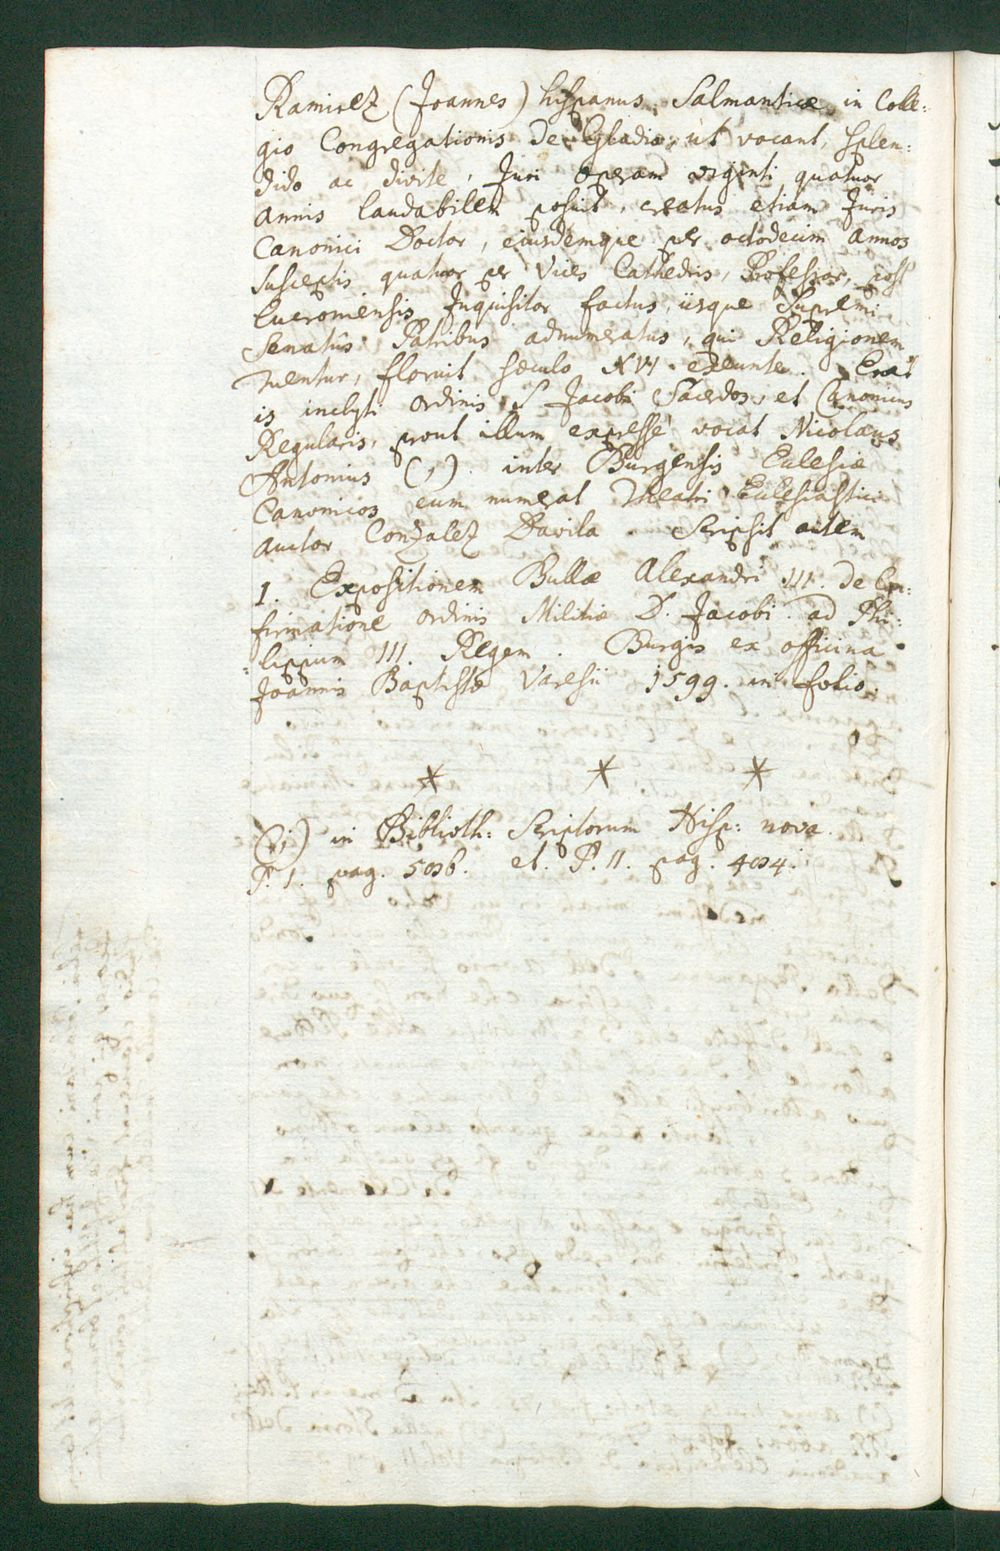 Ramirez (Joannes) hispanus. Salmanticæ in Colle:
gio Congregationis de Egladio, ut vocant, splen:
dido ac divite, Juri operam viginti quatuor
annis laudabilem posuit, creatus etiam Juris
Canonici Doctor, eiusdemque per octodecim annos
susceptis quatuor per vices Cathedris, Professor, post
Lucroniensis Inquisitor factus, iisque Supremi
Senatûs Patribus adnumeratus, qui Religionem
tuentur, floruit sæculo XVI exeunte. Erat
is inclyti ordinis S Jacobi Sacerdos, et Canonicus
Regularis, prout illum expresse vocat Nicolaus
Antonius (1). inter Burgensis Eclesiæ
Canonicos eum numerat Theatri Eclesiastici
auctor Gonzalez Davila. Scripsit autem
1. Expositionem Bullæ Alexandri III. de Con:
firmatione ordinis Militiæ D. Jacobi. ad Phi:
lippum III. Regem. Burgis ex officina
Joannis Baptistæ Varesii 1599. in folio.
* * *
(1) in Biblioth: Scriptorum Hisp: nova.
P. I. pag. 506. et. P. II. pag. 404.